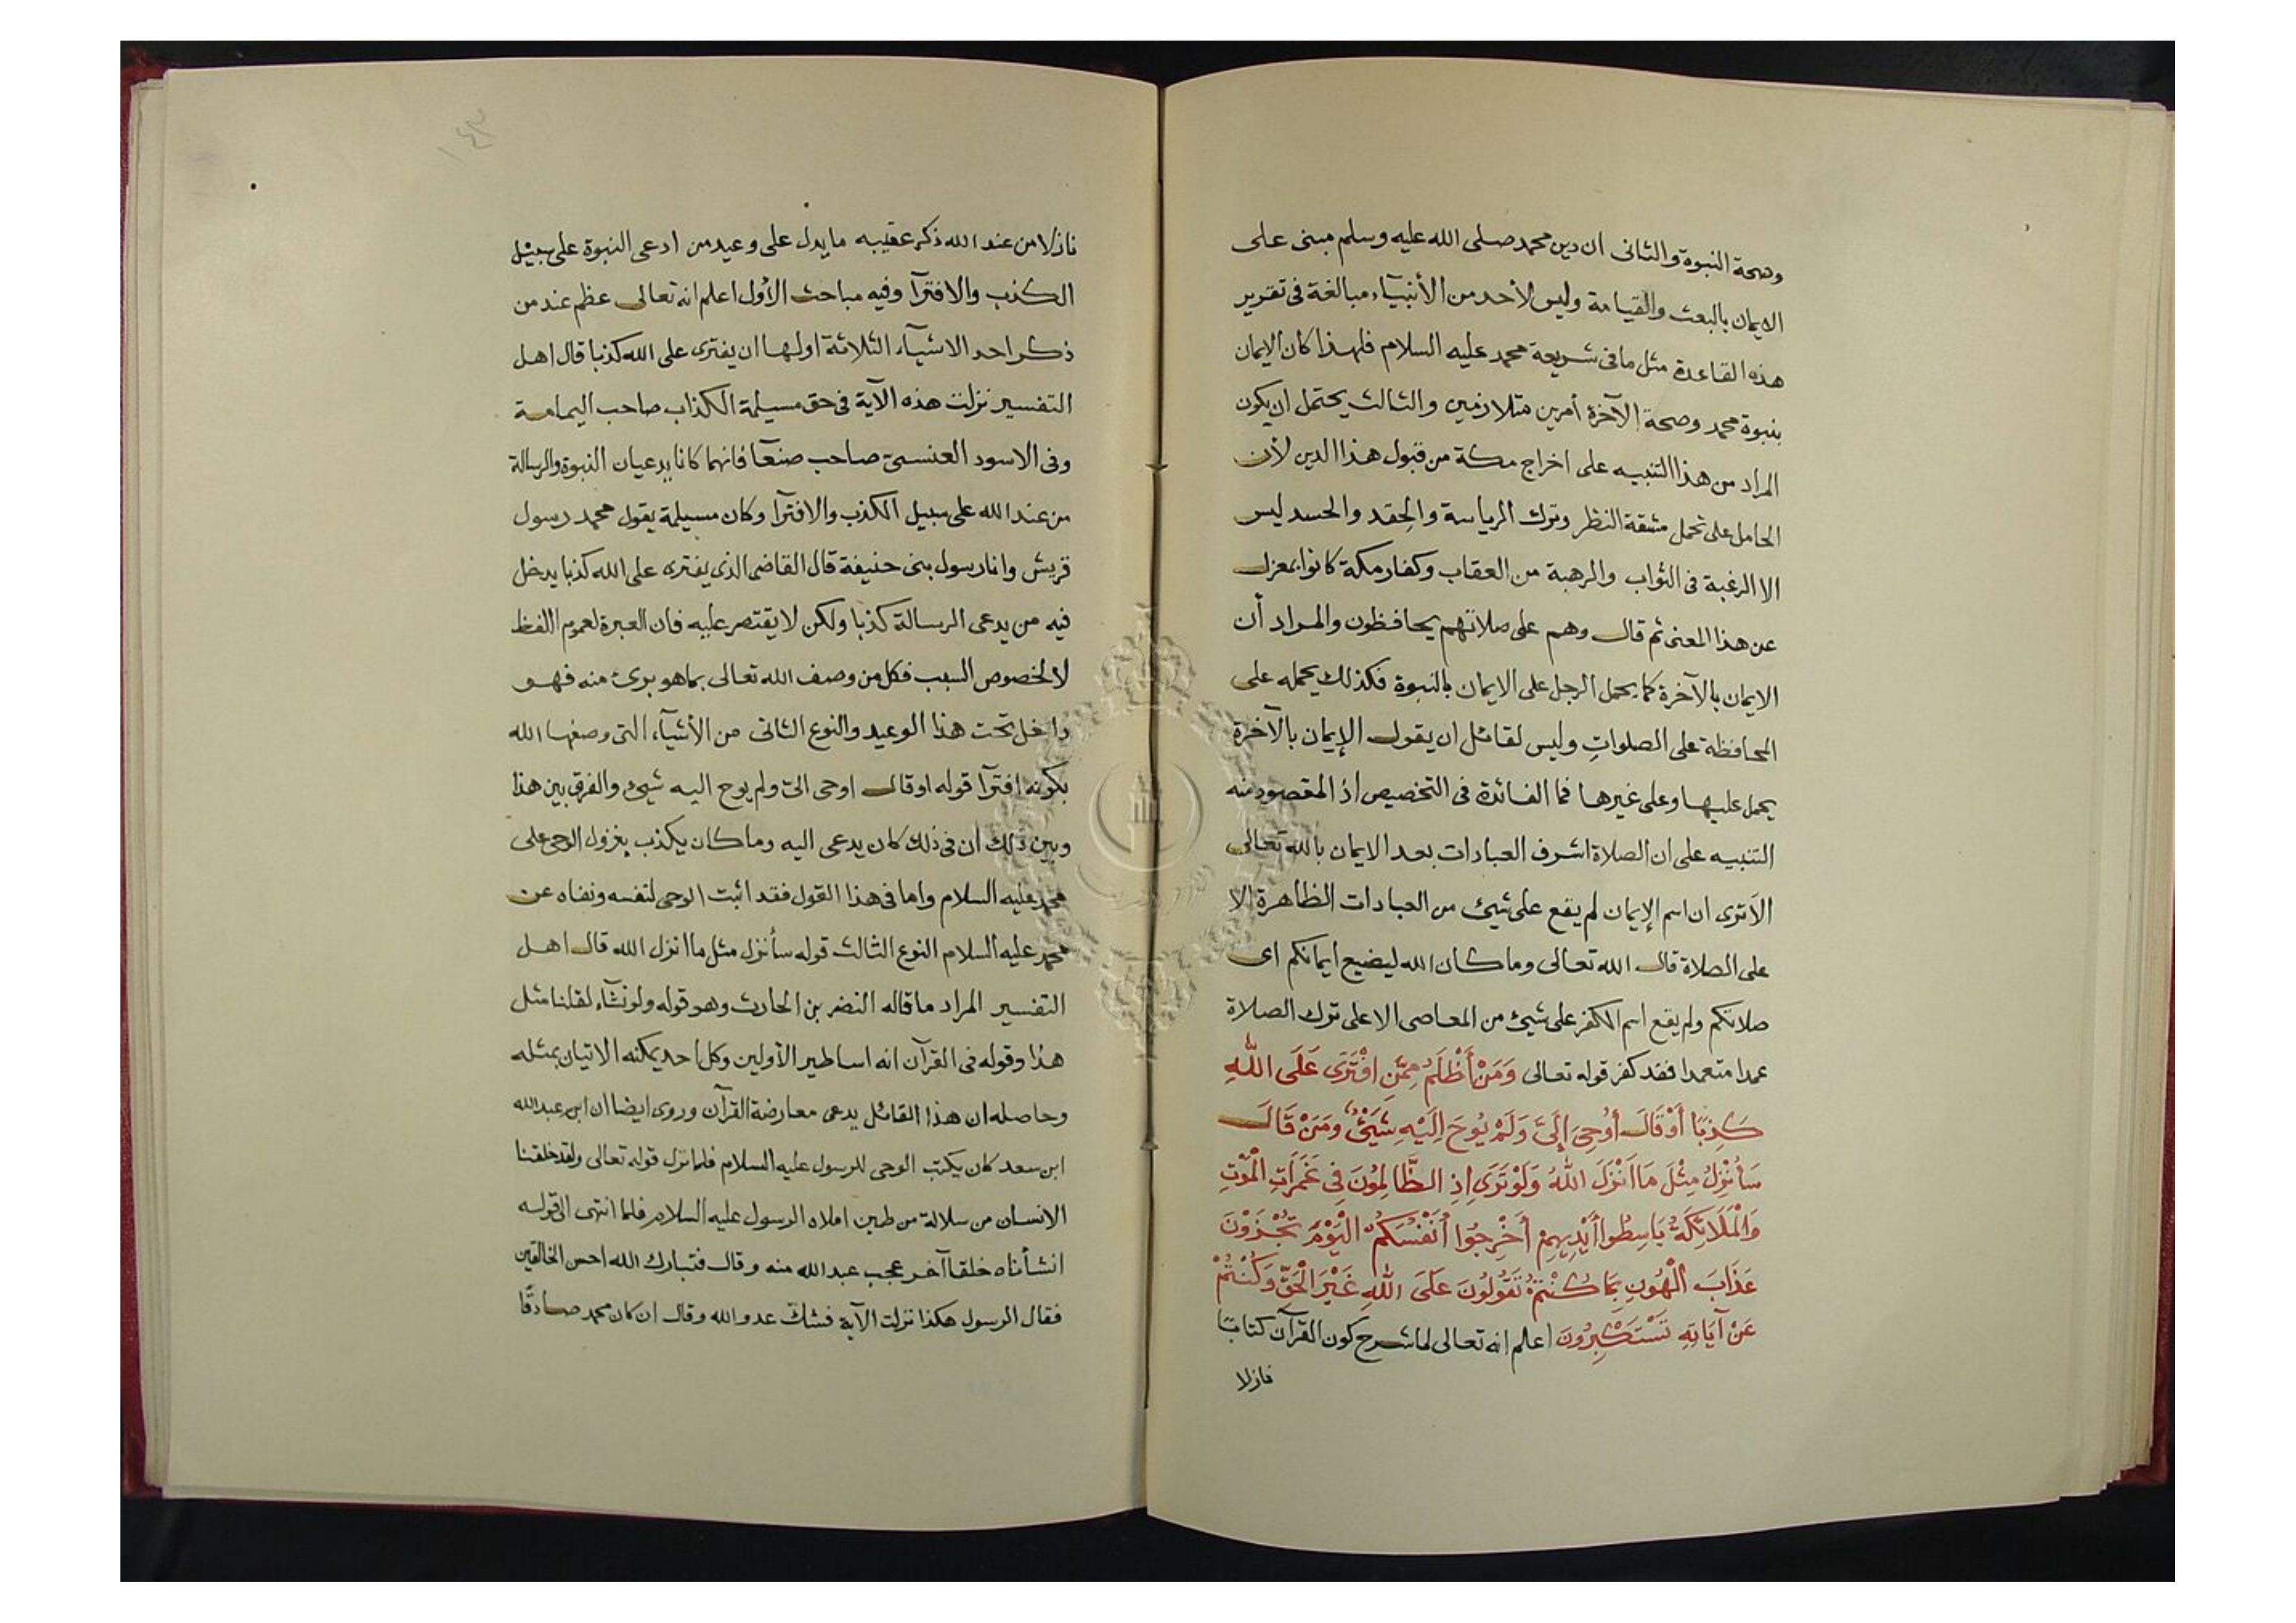 وصحة النبوة والثانى ان دين محمد صلى الله عليه وسلم مبنى على
الايمان بالبعث والقيامة وليس لأحد من الأنبيآء مبالغة فى تقرير
هذه القاعدة مثل ما فى شريعة محمد عليه السلام فلهذا كان الايمان
بنبوة محمد وصحة الآخرة أمرين متلازمين والثالث يحتمل ان يكون
المراد من هذا التنبيه على اخراج مكة من قبول هذا الدين لأن
الحامل على تحمل مشقة النظر وترك الرياسة والحِقد والحسد ليس
الا الرغبة فى الثواب والرهبة من العقاب وكفار مكة كانوا بمعزل
عن هذا المعنى ثم قال وهم على صلاتهم يحافظون والمراد أن
الايمان بالآخرة كما يحمل الرجل على الايمان بالنبوة فكذلك يحمله على
المحافظة على الصلواتِ وليس لقائل ان يقول الإيمان بالآخرة
يحمل عليها وعلى غيرها فما الفائدة فى التخصيص اذ المقصود منه
التنبيه على ان الصلاة اشرف العبادات بعد الايمان بالله تعالى
الأترى ان اسم الإيمان لم يقع على شيئ من العبادات الظاهرة الا
على الصلاة قال الله تعالى وما كان الله ليضيع ايمانكم اى
صلاتكم ولم يقع اسم الكفر على شيئ من المعاصى الا على ترك الصلاة
عمدا متعمدا فقد كفر قوله تعالى وَمَنْ أَظْلَمُ مِمَّنِ افْتَرَى عَلَى اللَّهِ
كَذِبًا أَوْ قَالَ أُوحِىَ إِلَىَّ وَلَمْ يُوحَ اِلَيْهِ شَيْئٌ وَمَنْ قَالَ
سَأُنْزِلُ مِثْلَ مَا اَنْزَلَ اللَّهُ وَلَوْ تَرَى اِذِ الظَّالِمُونَ فِى غَمَرَاتِ الْمَوْتِ
وَالْمَلَائِكَةُ بَاسِطُوا أَيْدِيهِمْ أَخْرِجُوا أَنْفُسَكُمُ الْيَوْمَ تُجْزَوْنَ
عَذَابَ الْهُونِ بِمَا كُنْتُمْ تَقُولُونَ عَلَى اللَّهِ غَيْرَ الْحَقِّ وَكُنْتُمْ
عَنْ آيَاتِهِ تَسْتَكْبِرُونَ اعلم انه تعالى لما شرح كون القرآن كتابًا
نازلا
١٤٣
نازلا من عند الله ذكر عقيبه ما يدل على وعيد من ادعى النبوة على سبيل
الكذب والافترآ وفيه مباحث الأول اعلم انه تعالى عظم عند من
ذكر احد الاشيآء الثلاثة اولها ان يفترى على الله كذبا قال اهل
التفسير نزلت هذه الآية فى حق مسيلمة الكذاب صاحب اليمامة
وفى الاسود العنسىّ صاحب صنعآ فانهما كانا يدعيان النبوة والرسالة
من عند الله على سبيل الكذب والافترآ وكان مسيلمة يقول محمد رسول
قريش وانا رسول بنى حنيفة قال القاضى الذى يفترى على الله كذبا يدخل
فيه من يدعى الرسالة كذبا ولكن لا يقتصر عليه فان العبرة لعموم اللفظ
لا لخصوص السبب فكل من وصف الله تعالى بما هو برئ منه فهو
داخل تحت هذا الوعيد والنوع الثانى من الأشيآء التى وصفها الله
بكونه افترآ قوله او قال اوحى الىّ ولم يوح اليه شيئ والفرق بين هذا
وبين ذلك أن فى ذلك كان يدعى اليه وما كان يكذب بنزول الوحى على
محمد عليه السلام واما فى هذا القول فقد اثبت الوحى لنفسه ونفاه عن
محمد عليه السلام النوع الثالث قوله سأنزل مثل ما انزل الله قال اهل
التفسير المراد ما قاله النضر بن الحارث وهو قوله ولو نشآء لقلنا مثل
هذا وقوله فى القرآن انه اساطير الأولين وكل احد يمكنه الاتيان بمثله
وحاصله ان هذا القائل يدعى معارضة القرآن وروى ايضا ان ابن عبد الله
ابن سعد كان يكتب الوحى للرسول عليه السلام فلما نزل قوله تعالى ولقد خلقنا
الانسان من سلالة من طين املاه الرسول عليه السلام فلما انتهى الى قوله
انشأناه خلقا آخر عجب عبد الله منه وقال فتبارك الله احسن الخالقين
فقال الرسول هكذا نزلت الآية فشكّ عدو الله وقال ان كان محمد صادقًا